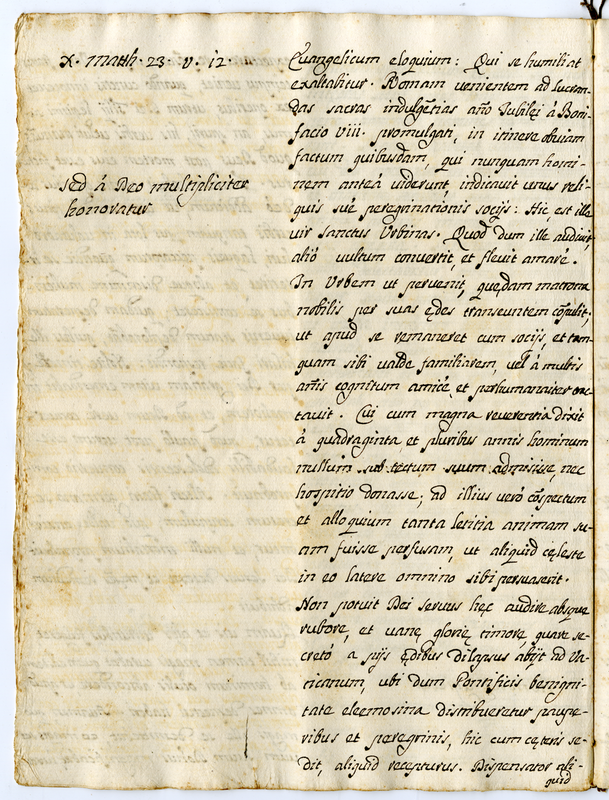 X. Matth. 23. v. 12.
sed á Deo multipliciter
honoratur
Evangelicum eloquium: Qui se humiliat
exaltabitur. Romam venientem ad lucran-
das sacras indulgẽtias año Iubilei á Boni-
facio VIII. promulgati, in itinere obviam
factum quibusdam, qui nunquam homi-
nem anteá viderunt, indicavit unus reli-
quis suę peregrinationis socijs: Hic est ille
vir sanctus Urbinas. Quod dum ille audivit,
alió vultum convertit, et flevit amarè.
In Urbem ut pervenit, quędam matrona
nobilis per suas ędes transeuntem cõpulit,
ut apud se remaneret cum socijs, et tam-
quam sibi valde familiarem, vel á multis
añis cognitum amicè, et perhumaniter
tavit. Cui cum magna reverentia dixit
á quadraginta et pluribus annis hominum
nullum sub tectum suum admisisse, nec
hospitio donasse; ad illius veró cõspectum
et alloquium tanta letitia animam su-
am fuisse perfusam, ut aliquid cęleste
in eo latere omnino sibi persuaserit.
Non potuit Dei servus hęc audire absque
rubore, et vanę glorię timore, quare se-
cretó a pijs ędibus dilapsus abijt ad Va-
ticanum, ubi dum Pontificis benigni-
tate eleemosina distribueretur paupe-
ribus et peregrinis, hic cum cęteris se-
dit, aliquid recepturus. Dispensator ali-
quid